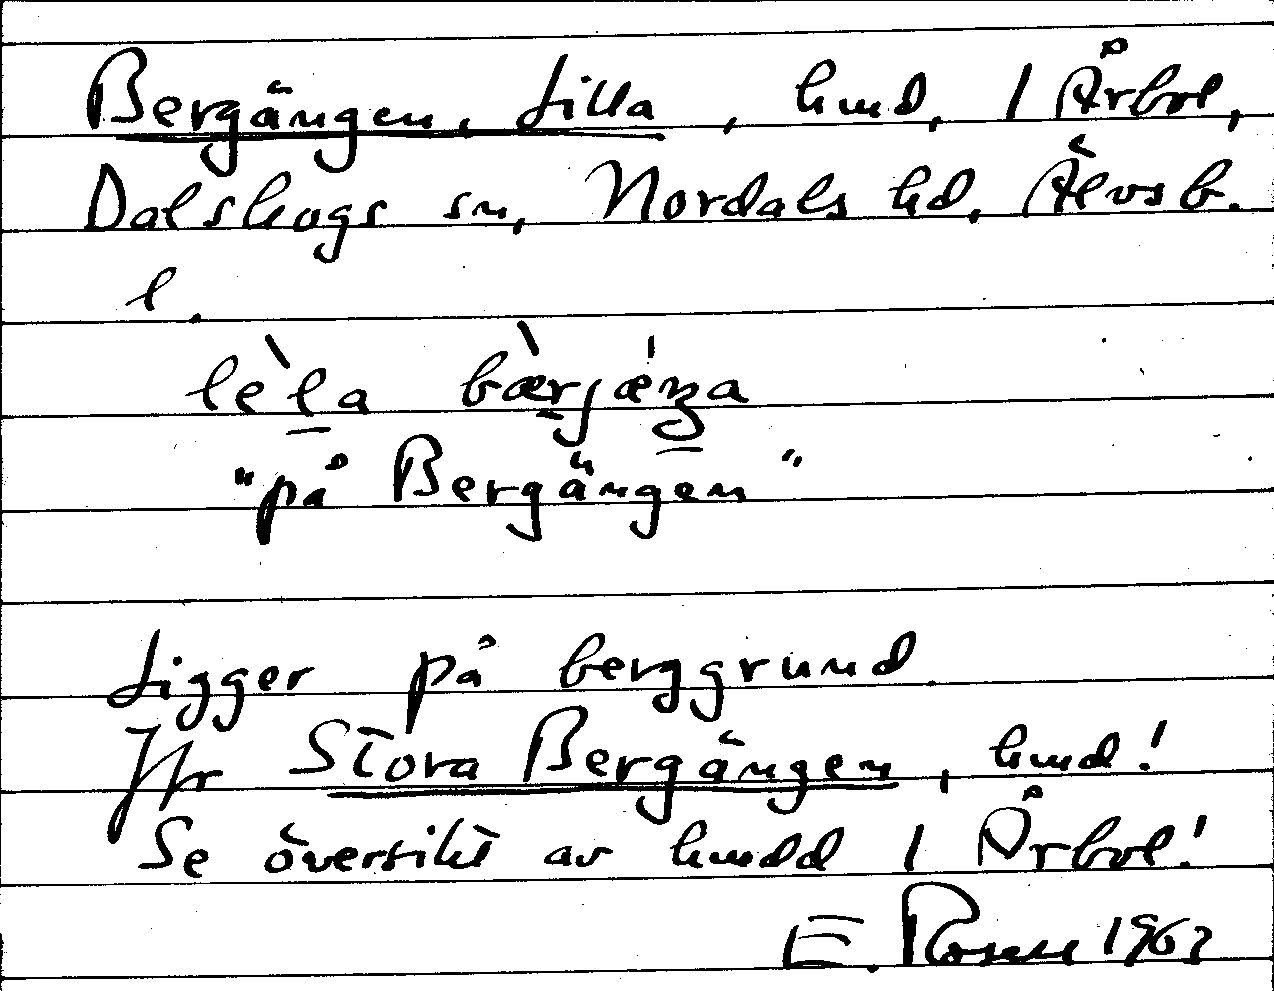 Bergängen, Lilla, hmd, i Årbol,
Dalskogs sn, Nordals hd, Älvsb.
l.
lè̀la bærjǽŋa
"på Bergängen"
Ligger på berggrund.
Jfr Stora Bergängen, hmd!
Se översikt av hmdd i Årbol!
E. Rosell 1963